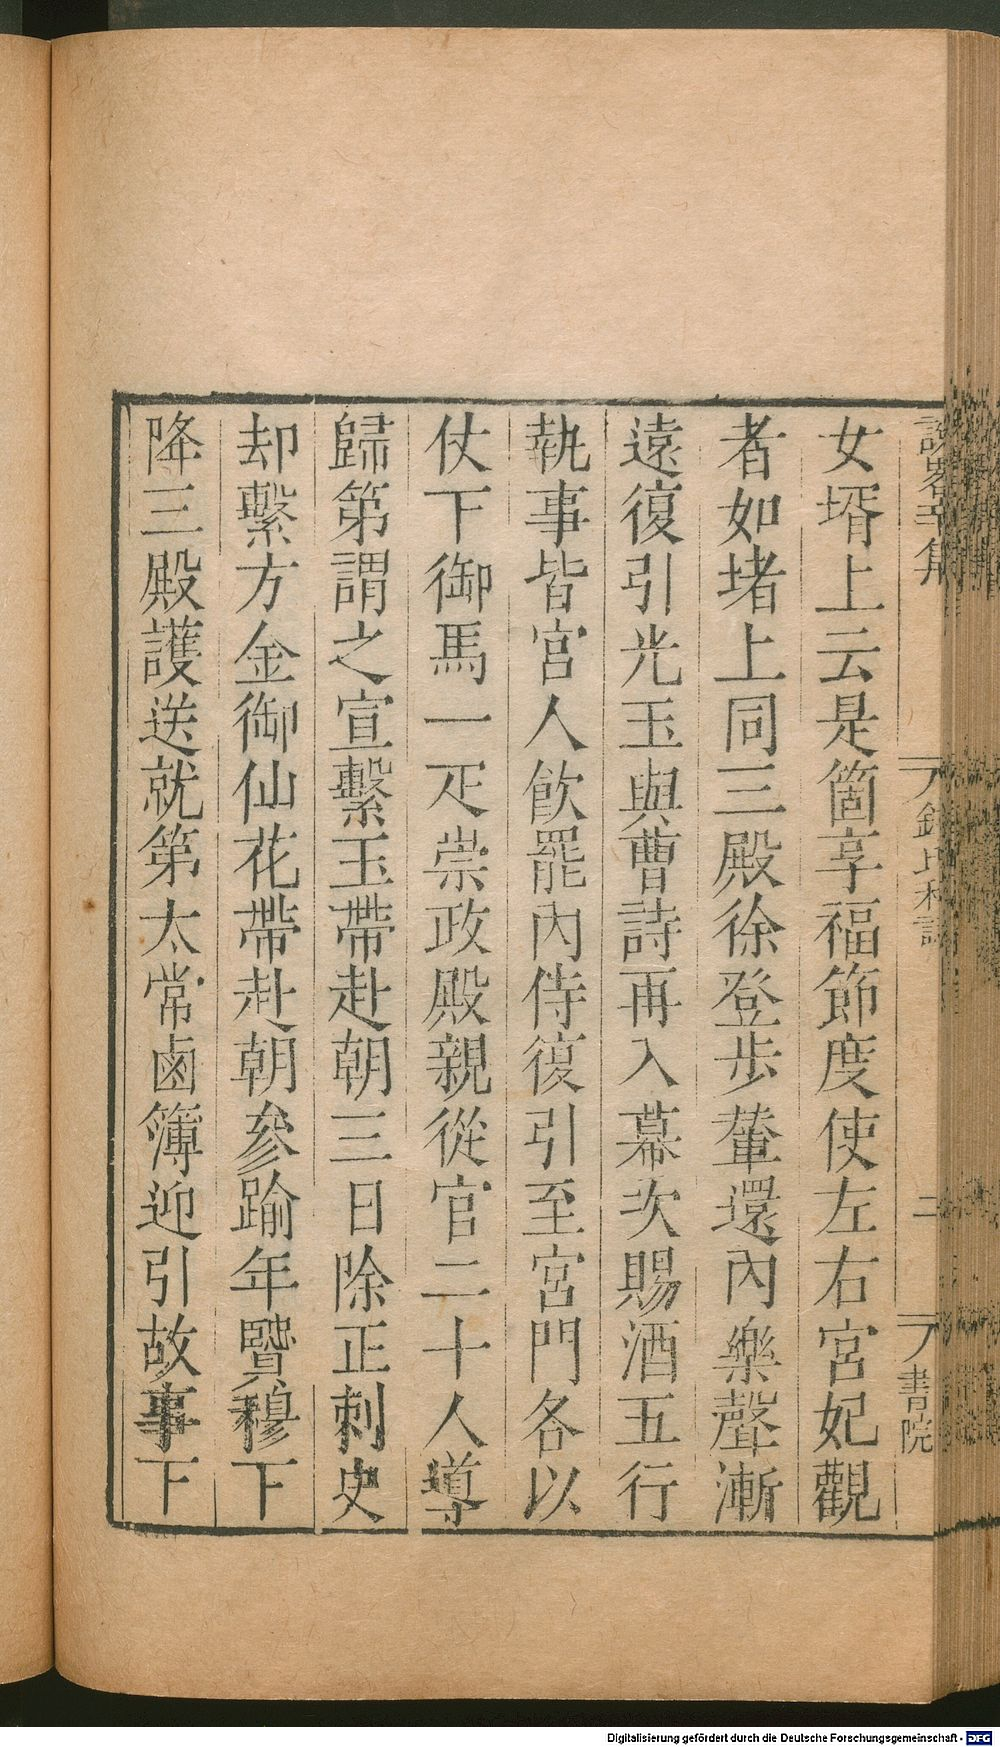 女壻上云是箇享福節度使左右宮妃觀
者如堵上同三殿徐登步輦還內樂聲漸
遠復引光玉與曹詩再入幕次賜酒五行
執事皆宮人飮罷內侍復引至宮門各以
仗下御馬一疋崇政殿親從官二十人導
歸第謂之宣繫玉帶赴朝三日除正刺史
却繫方金御仙花帶赴朝參踰年賢穆下
降三殿護送就第太常鹵簿迎引故事下
錢氏私誌
二
書院
Digitalisierung gefördert durch die Deutsche Forschungsgemeinschaft - DFG